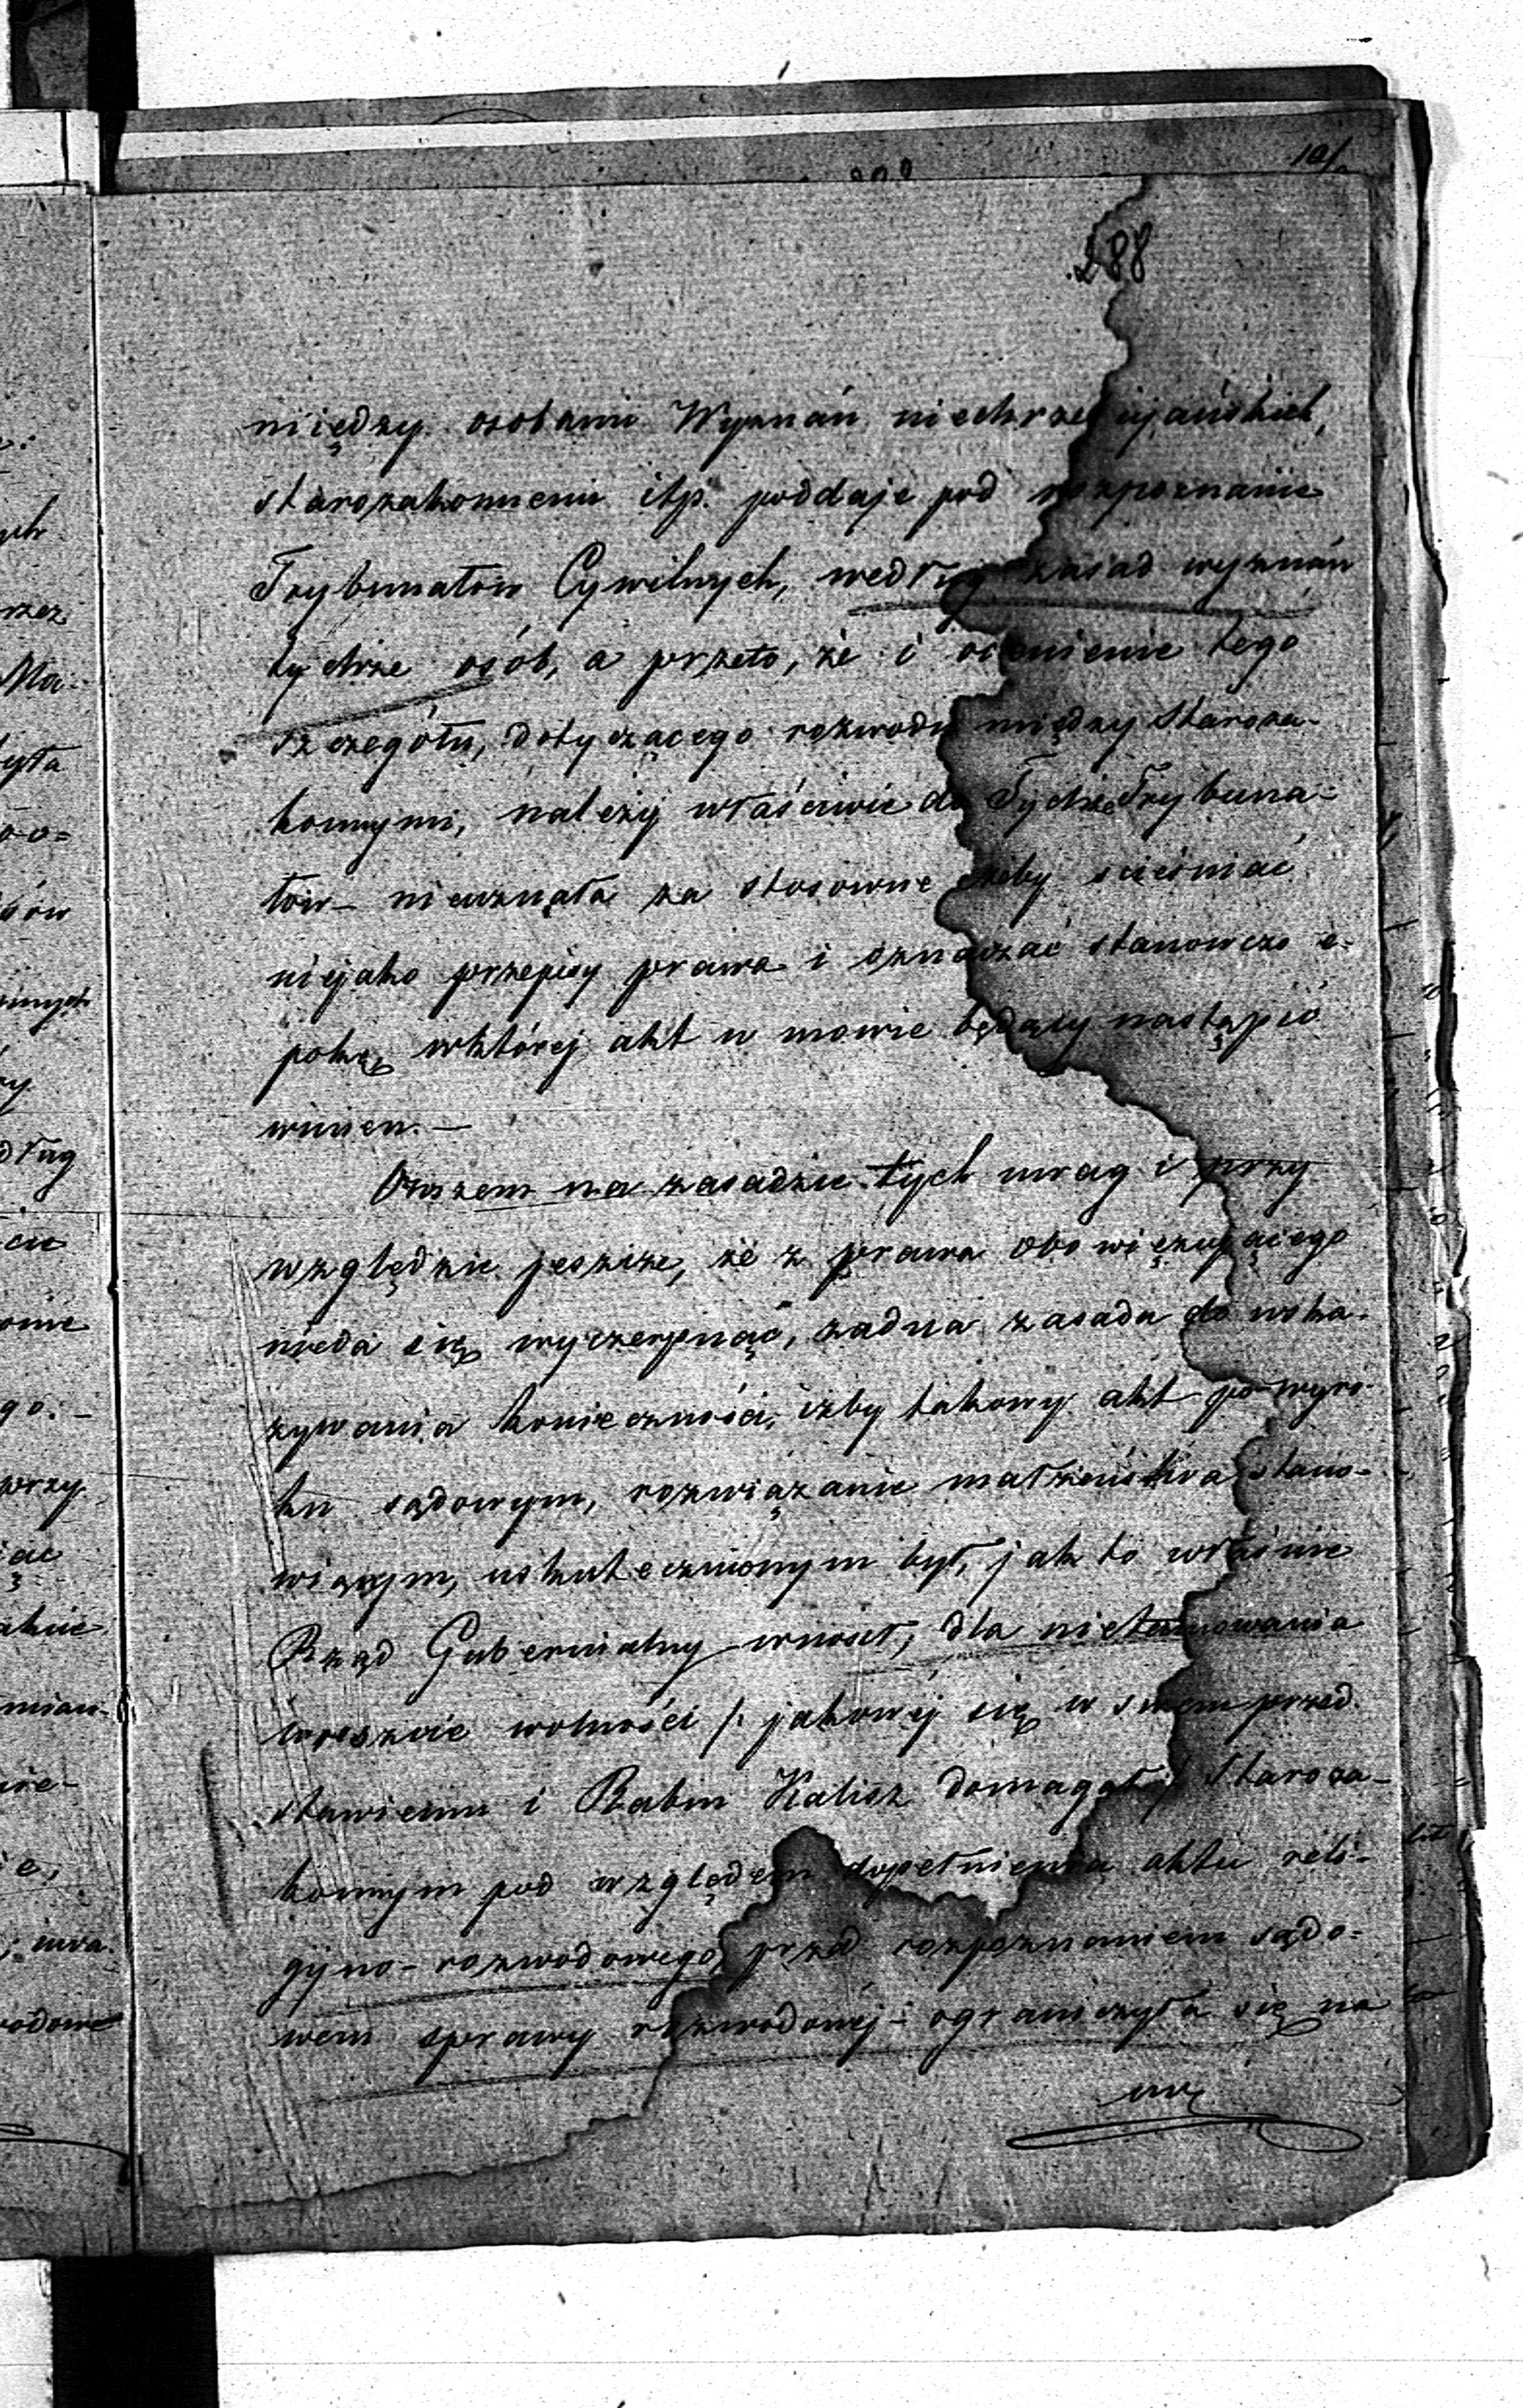 288
między osobami Wyznań niechrześcijańskich,
starozakonnemi itp. poddaje pod rozpoznanie
Trybunałów Cywilnych, według zasad wyznań
tychże osób, a przeto, że i ocenienie tego
szczegółu, dotyczącego rozwodu między Staroza-
konnymi, należy właściwie do Tychże Trybuna-
łów – nieuznała za stosowne ażeby ścieśniać
niejako przepisy prawa i oznaczać stanowczo e-
pokę, wktórej akt w mowie będący nastąpić
winien. –
Owszem na zasadzie tych uwag i przy
względzie jeszcze, że z prawa obowięzującego
nieda się wyczerpnąć, żadna zasada do wska-
zywania konieczności, iżby takowy akt po wyro-
ku sądowym, rozwiązanie małżeństwa stano-
wiącym, uskutecznionym był, jak to właśnie
Rząd Gubernialny wnosił, dla nietamowania
wreszcie wolności /: jakowej się w swem przed-
stawieniu i Rabin Kalisz domagał :/ Staroza-
konnym pod względem dopełnienia aktu reli-
gijno-rozwodowego, przed rozpoznaniem sądo-
wem sprawy rozwodowej – ograniczyła się na